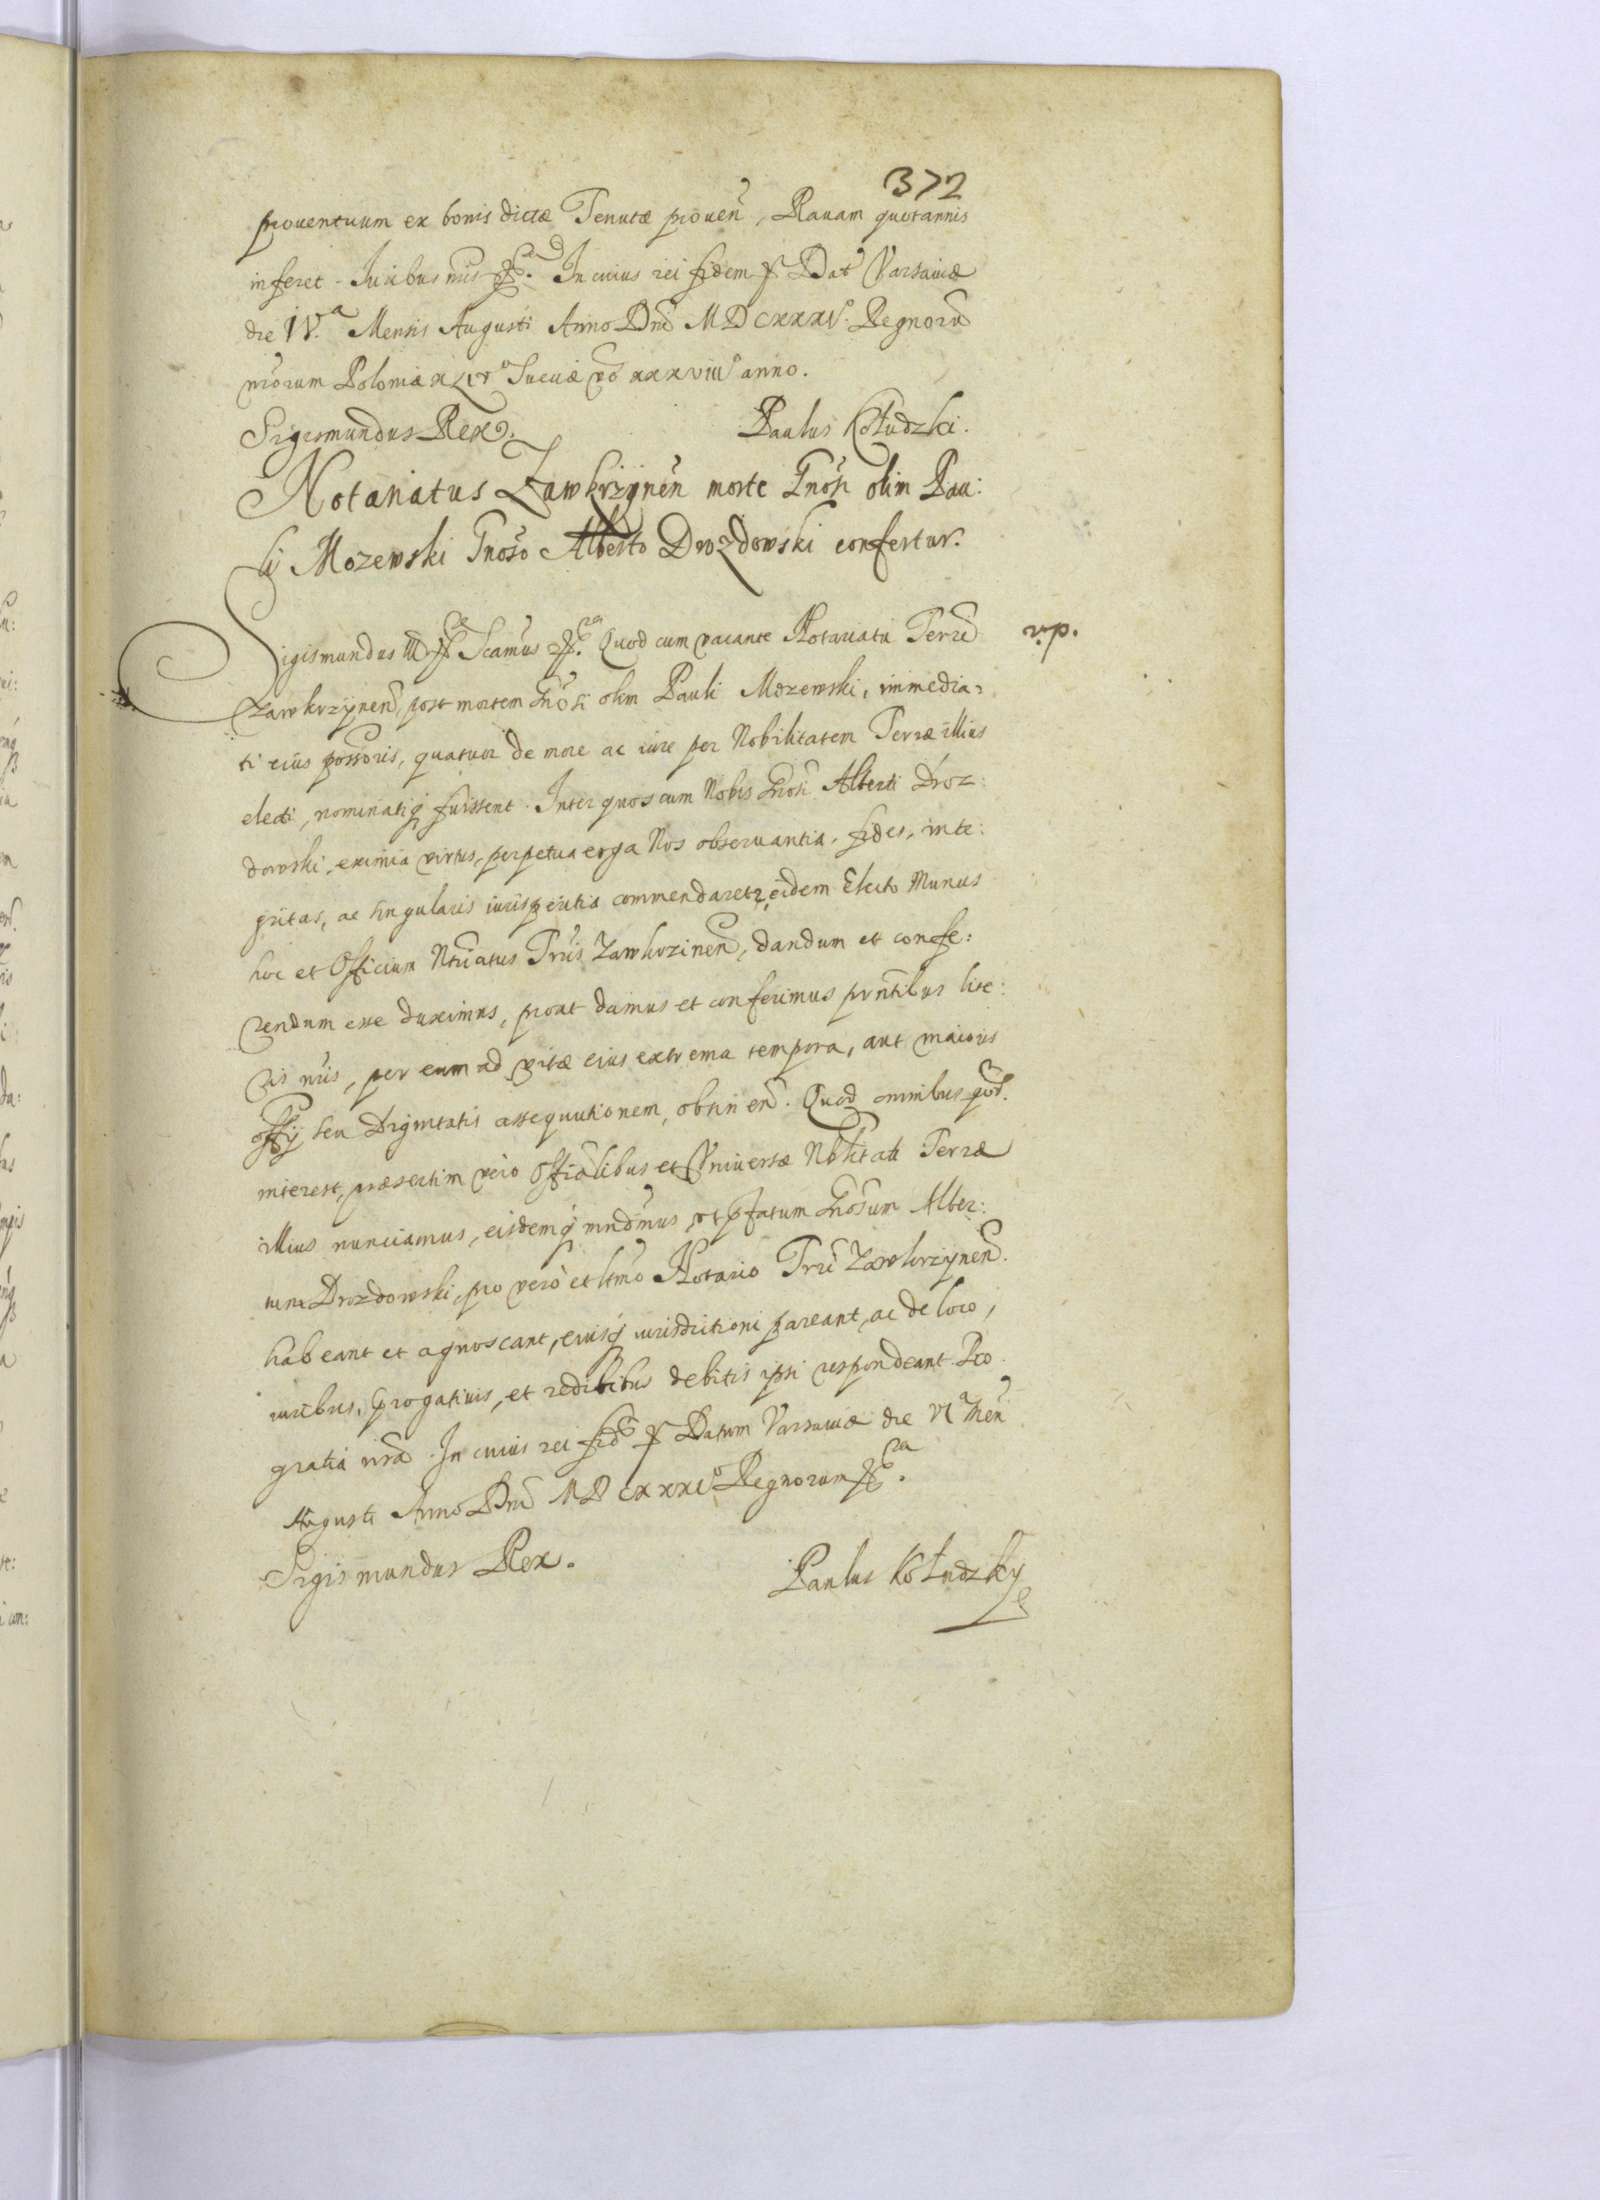 372
prouentuum ex bonis dictæ Tenutæ prouen̄, Rauam quotannis
inferet. Iuribus nr̄is &c. In cuius rei fidem &c. Dat Varsauiæ
die IV.a Mensis Augusti Anno Dnī MDCXXXI.o Regnorū
nr̄orum Poloniæ XLIVo Sueciæ v̄o XXXVIIIo anno.
Sigismundus Rex. Paulus Kołudzki.
Notariatus Zawkrzynen̄ morte Gnōsi olim Pau:
li Mozewski Gnōso Alberto Drozdowski confertur.
v.p.
Sigismundus III &c. Scāmus &c. Quod cum vacante Notariatu Terrē
Zawkrzynen̄, post mortem Gnōsi olim Pauli Mozewski, immedia:
ti eius possoris, quatuor de more ac iure per Nobilitatem Terræ illius
electi, nominatiq fuissent. Inter quos cum Nobis Gnōsi Alberti Droz:
dowski, eximia virtus, perpetua erga Nos obseruantia, fides, inte:
gritas, ac singularis iurisperitia commendaretr, eidem Electo Munus
hoc et Officium Ntriatus Trr̄is Zawkrzinen̄, dandum et confe:
rendum esse duximus, prout damus et conferimus prn̄tibus lite:
ris nr̄is, per eum ad vitæ eius extrema tempora, aut maioris
offī seu Dignitatis assequutionem, obtinen̄. Quod omnibus quor̄.
interest, præsertim vero Offīalibus et Vniuersæ Nobltati Terræ
illius nunciamus, eisdemq mndāmus, vt pfatum Gnōsum Alber:
tum Drozdowski, pro vero et ltmō Notario Trrē Zawkrzynen̄.
habeant et agnoscant, eiusq iurisdictioni pareant, ac de loco,
iuribus, prrogatiuis, et redditibus debitis ipsi respondeant. Pro
gratia nr̄a. In cuius rei fidē &c. Datum Varsauiæ die VIa Men̄
Augusti Anno Dnī MDCXXXIo Regnorum &c.
Sigismundus Rex. Paulus Kołudzky